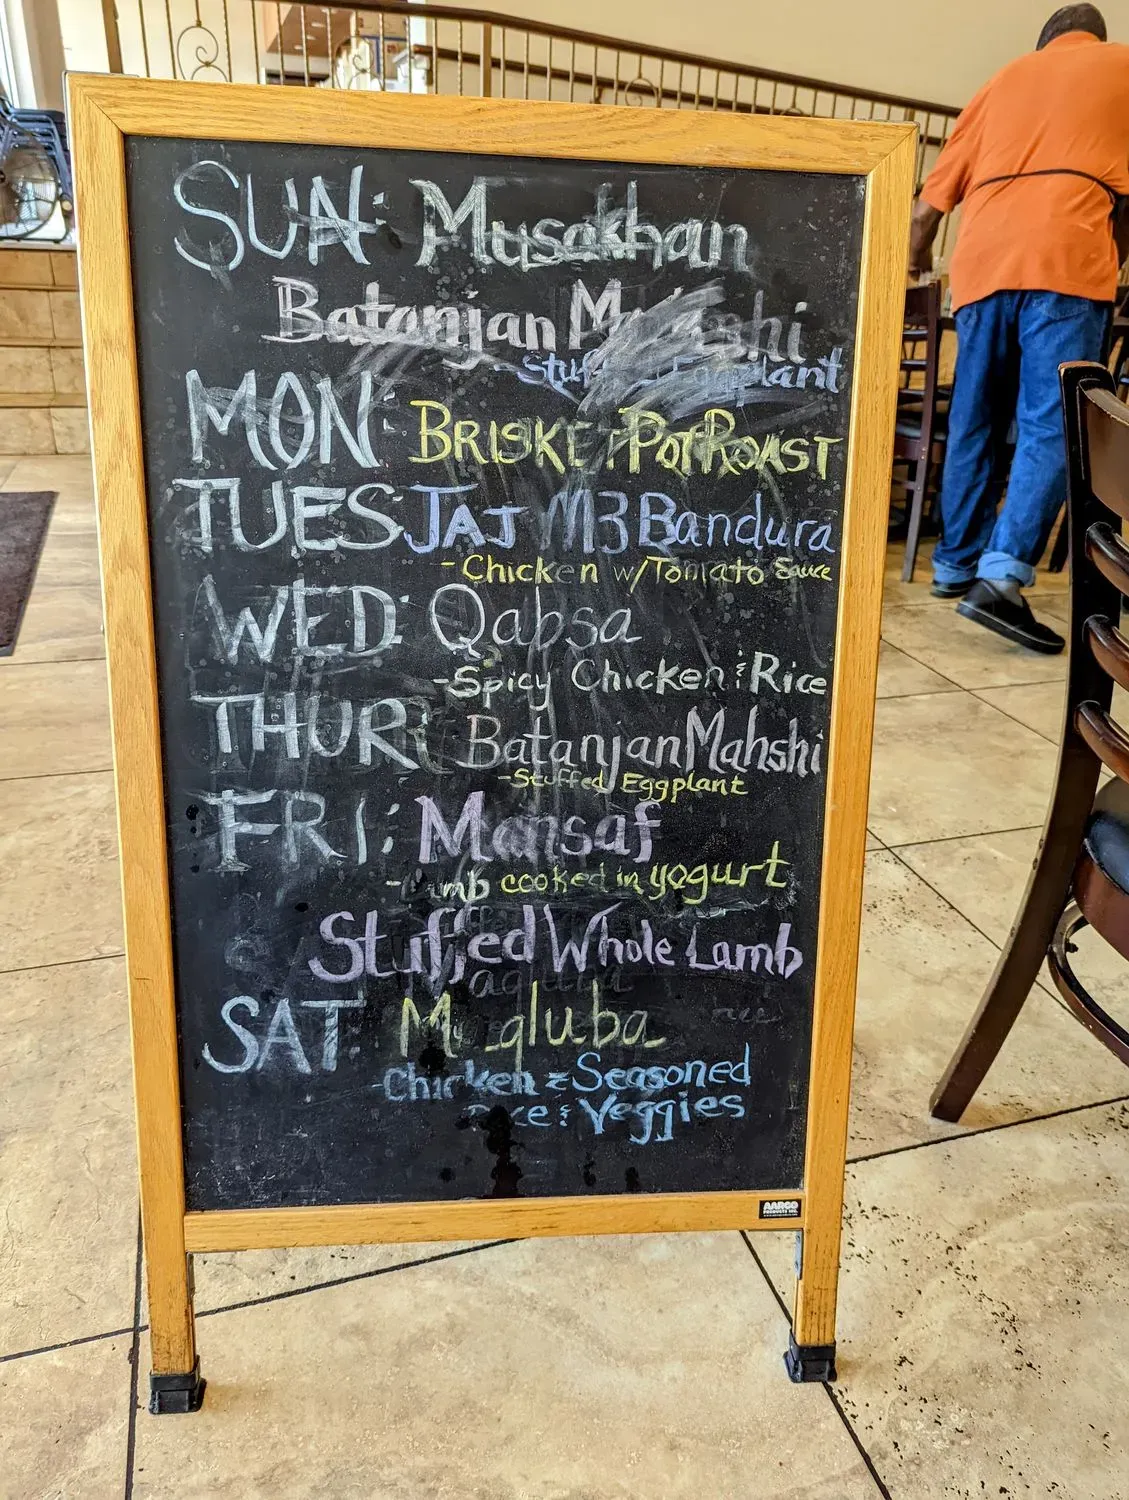 SUN: Musakhan
Batanjan Mahshi
-Stuffed Eggplant
MON: BRISKET POT ROAST
TUES: JAJ M3 Bandura
-Chicken w/Tomato Sauce
WED: Qabsa
-Spicy Chicken & Rice
THUR: Batanjan Mahshi
-Stuffed Eggplant
FRI: Mansaf
-Lamb cooked in yogurt
Stuffed Whole Lamb
SAT: Maqluba
-Chicken Seasoned
Rice & Veggies
AARCO
PRODUCTS INC.